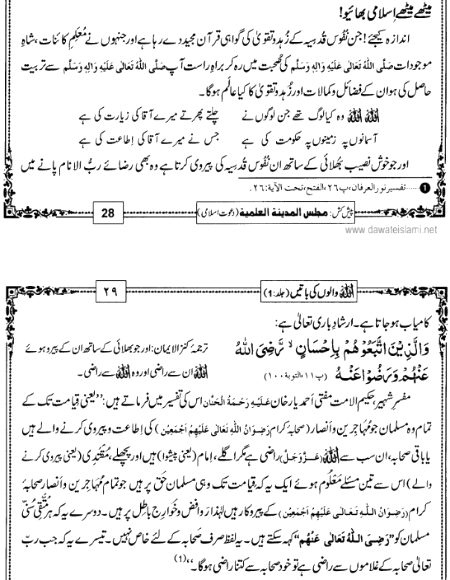 میٹھے میٹھے اسلامی بھائیو!
اندازہ کیجئے! جن نُفوسِ قُدسِیہ کے زُہد و تقویٰ کی گواہی قرآنِ مجید دے رہا ہے اور جنہوں نے مُعلِّمِ کائنات، شاہِ
موجودات صَلَّی اللہُ تَعَالٰی عَلَیْہِ وَاٰلِہٖ وَسَلَّم کی صُحبت میں رہ کر براہِ راست آپ صَلَّی اللہُ تَعَالٰی عَلَیْہِ وَاٰلِہٖ وَسَلَّم سے تربیت
حاصل کی ہو ان کے فضائل و کمالات اور زُہد و تقویٰ کا کیا عالَم ہوگا۔
اللہ اللہ وہ کیا لوگ تھے جن لوگوں نے چلتے پھرتے مرے آقا کی زیارت کی ہے
آسمانوں پہ زمینوں پہ حکومت کی ہے جس نے میرے آقا کی اِطاعت کی ہے
اور جو خوش نصیب بھلائی کے ساتھ ان نُفوسِ قُدسِیہ کی پیروی کرتا ہے وہ بھی رضائے ربُّ الانام پانے میں
1 ……تفسیر نور العرفان، پ۲۶، الفتح، تحت الآیۃ: ۲۶.
پیش کش: مجلس المدینۃ العلمیۃ (دعوتِ اسلامی) 28
www.dawateislami.net
اللہ والوں کی باتیں (جلد:1) ۲۹
کامیاب ہو جاتا ہے۔ ارشادِ باری تعالیٰ ہے:
وَالَّذِیْنَ اتَّبَعُوْهُمْ بِاِحْسَانٍۙ رَّضِیَ اللّٰهُ ترجمۂ کنز الایمان: اور جو بھلائی کے ساتھ ان کے پیرو ہوئے
عَنْهُمْ وَرَضُوْاعَنْهُ (پ۱۱، التوبۃ: ۱۰۰) اللہ ان سے راضی اور وہ اللہ سے راضی۔
مفسرِ شہیر، حکیمُ الامت مفتی احمد یار خان عَلَیْہِ رَحْمَۃُ الْحَنَّان اس کی تفسیر میں فرماتے ہیں: ”یعنی قیامت تک کے
تمام وہ مسلمان جو مُہاجرین و اَنصار (صحابۂ کرام رِضْوَانُ اللہِ تَعَالٰی عَلَیْہِمْ اَجْمَعِیْن) کی اِطاعت و پیروی کرنے والے ہیں
یا باقی صحابہ، ان سب سے اللہ عَزَّوَجَلَّ راضی ہے مگر اگلے، امام (یعنی پیشوا) ہیں اور پچھلے، مُقتدی (یعنی پیروی کرنے
والے) اس سے تین مسئلے معلوم ہوئے ایک یہ کہ قیامت تک وہی مسلمان حق پر ہیں جو تمام مُہاجرین و اَنصار صحابۂ
کرام (رِضْوَانُ اللہِ تَعَالٰی عَلَیْہِمْ اَجْمَعِیْن) کے پیروکار ہیں لہٰذا روافض و خوارج باطل پر ہیں۔ دوسرے یہ کہ ہر مُتّقی سُنّی
مسلمان کو ”رَضِیَ اللہُ تَعَالٰی عَنْہُم“ کہہ سکتے ہیں۔ یہ لفظ صرف صحابہ کے لئے خاص نہیں۔ تیسرے یہ کہ جب ربّ
تعالیٰ صحابہ کے غلاموں سے راضی ہے تو خود صحابہ سے کتنا راضی ہوگا۔“ (1)